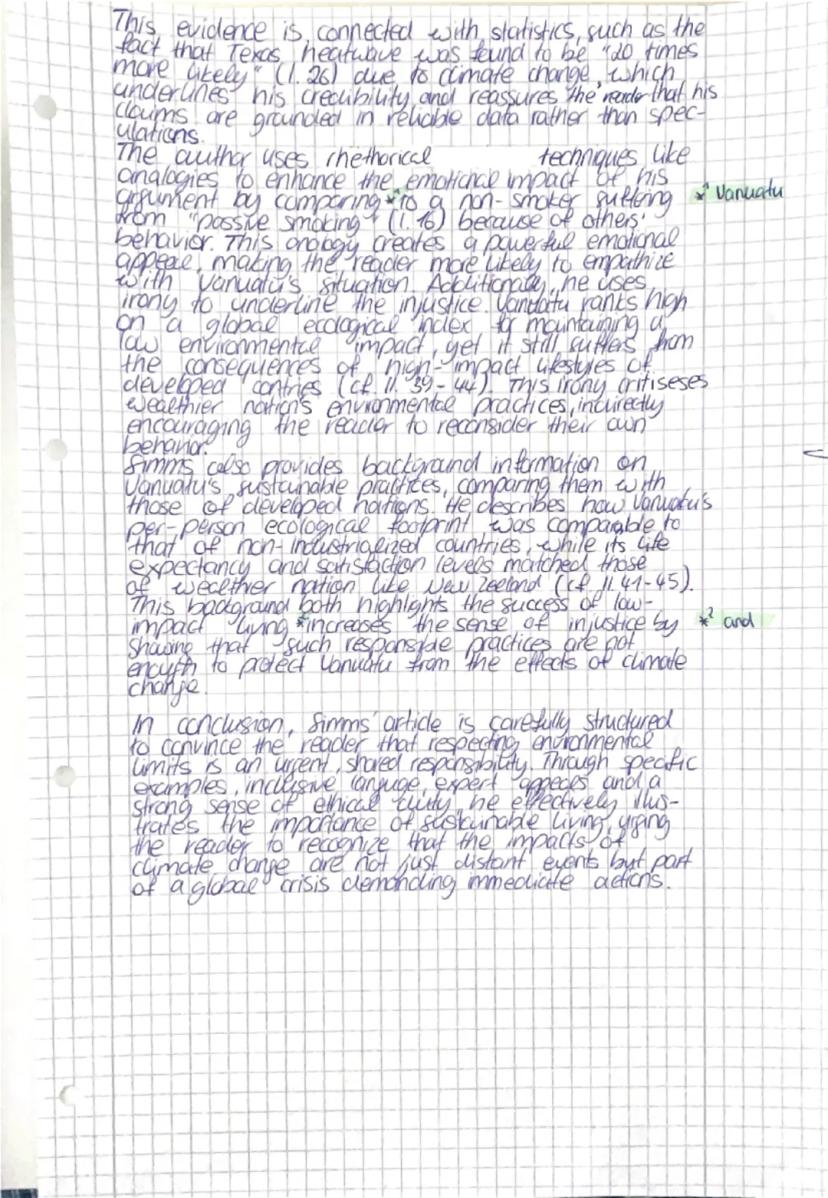 This evidence is connected with statistics, such as the
fact that Texas heatwave was found to be "20 times
more likely" (l. 26) due to climate change, which
underlines his credibility and reassures the reader that his
claims are grounded in reliable data rather than spec-
ulations.
The author uses rhethorical techniques like
analogies to enhance the emotional impact of his
argument by comparing *¹ to a non-smoker suffering *¹ Vanuatu
from "passive smoking" (l. 16) because of others'
behavior. This analogy creates a powerful emotional
appeal, making the reader more likely to empathize
with Vanuatu's situation. Additionally, he uses
irony to underline the injustice. Vanuatu ranks high
on a global ecological index for maintaining a
low environmental impact, yet it still suffers from
the consequences of high-impact lifestyles of
developed contries (cf. ll. 39-44). This irony critiseses
wealthier nation's environmental practices, indirectly
encouraging the reader to reconsider their own
behavior.
Simms also provides background information on
Vanuatu's sustainable practices, comparing them with
those of developed nations. He describes how Vanuatu's
per-person ecological footprint was comparable to
that of non-industrialized countries, while its life
expectancy and satisfaction levels matched those
of wealther nation like New Zeeland (cf. ll. 41-45).
This background both highlights the success of low-
impact living *² increases the sense of injustice by *² and
showing that such responsible practices are not
enough to protect Vanuatu from the effects of climate
change.
In conclusion, Simms' article is carefully structured
to convince the reader that respecting environmental
limits is an urgent, shared responsibility. Through specific
examples, inclusive languge, expert appeals and a
strong sense of ethical duty, he effectively illus-
trates the importance of sustainable living, urging
the reader to recognize that the impacts of
climate change are not just distant events but part
of a global crisis demanding immediate actions.